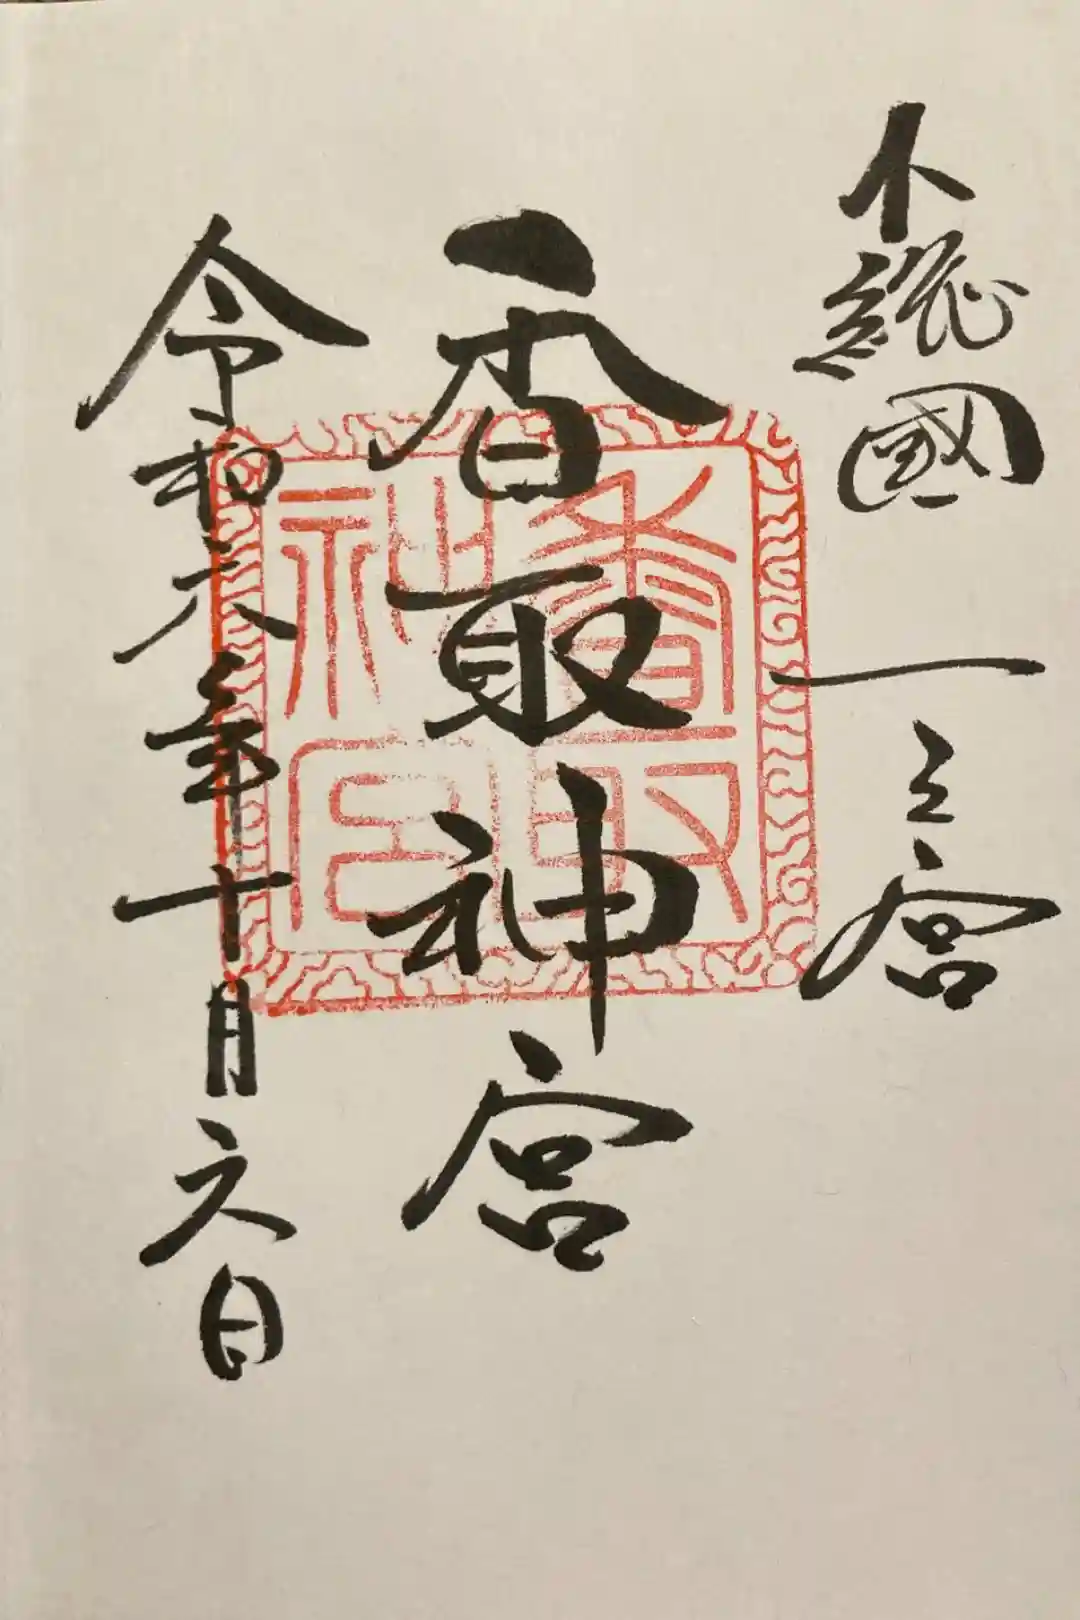 下總國一之宮
香取神宮
香取神宮
令和六年十月六日